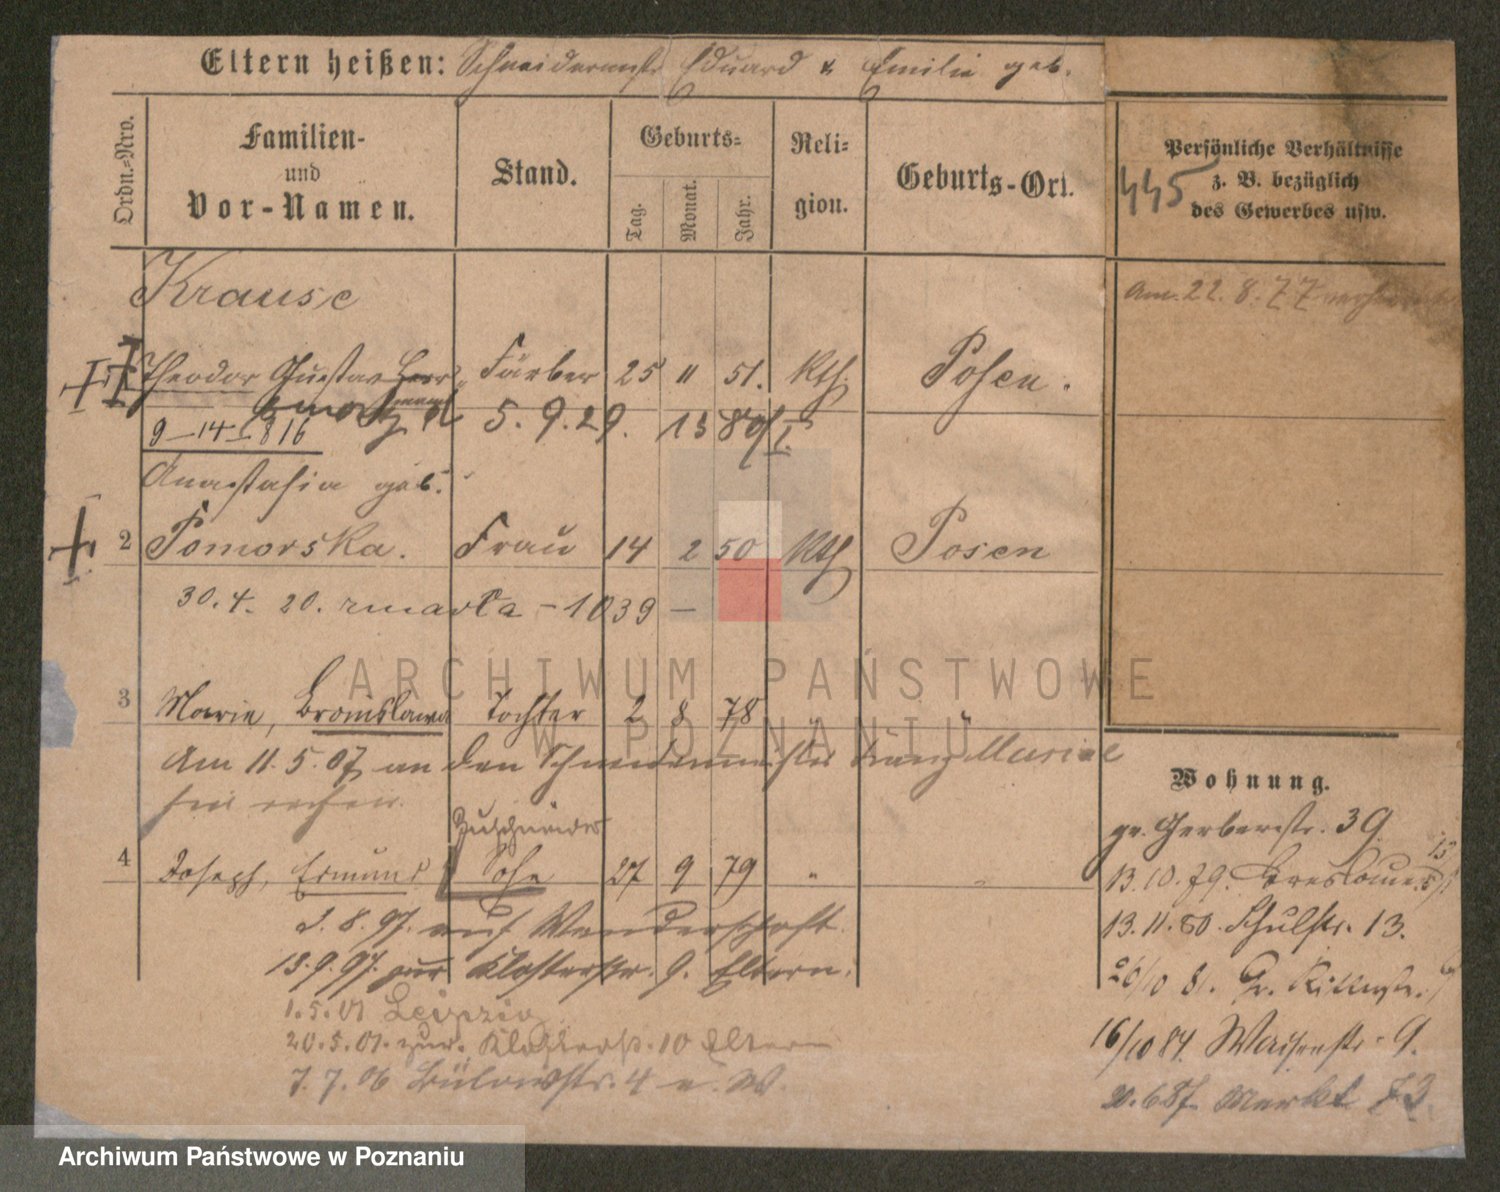 Eltern heißen: Schneidermstr. Eduard & Emilie geb.
Ordn.-Nro.
Familien-
und
Vor-Namen.
Stand.
Geburts-
Tag.
Monat.
Jahr.
Reli-
gion.
Geburts-Ort.
Persönliche Verhältnisse
z. B. bezüglich
des Gewerbes usw.
445
Krause
Am 22. 8. 77
Theodor Gustav Färber 25 11 51. Kth. Posen.
zmarł 5. 9. 29. 1380/I.
9-14-I-816
Anastasia geb.
2 Pomorska. Frau 14 2 50 Kth Posen
30. 4. 20. zmarła - 1039 -
3 Marie, Bronislawa Tochter 2 8 78 "
Am 11. 5. 07 an den Schneidermeister
Zuschneider
4 Joseph, Edmund Sohn 27 9 79 " "
2. 8. 97. auf Wanderschaft.
13. 9. 97. zur Klosterstr. 9. Eltern.
1. 5. 01 Leipzig
20. 5. 01. zur. Klosterstr. 10 Eltern
7. 7. 06 Bülowstr. 4 b. W.
Wohnung.
gr. Gerberstr. 39
13. 10. 79. Breslauer 15
13. 11. 80. Schulstr. 13.
26/10 81. Gr. Ritterstr.
16/10 84. Waisenstr. 9.
20. 6 87. Markt 73.
ARCHIWUM PAŃSTWOWE
W POZNANIU
Archiwum Państwowe w Poznaniu